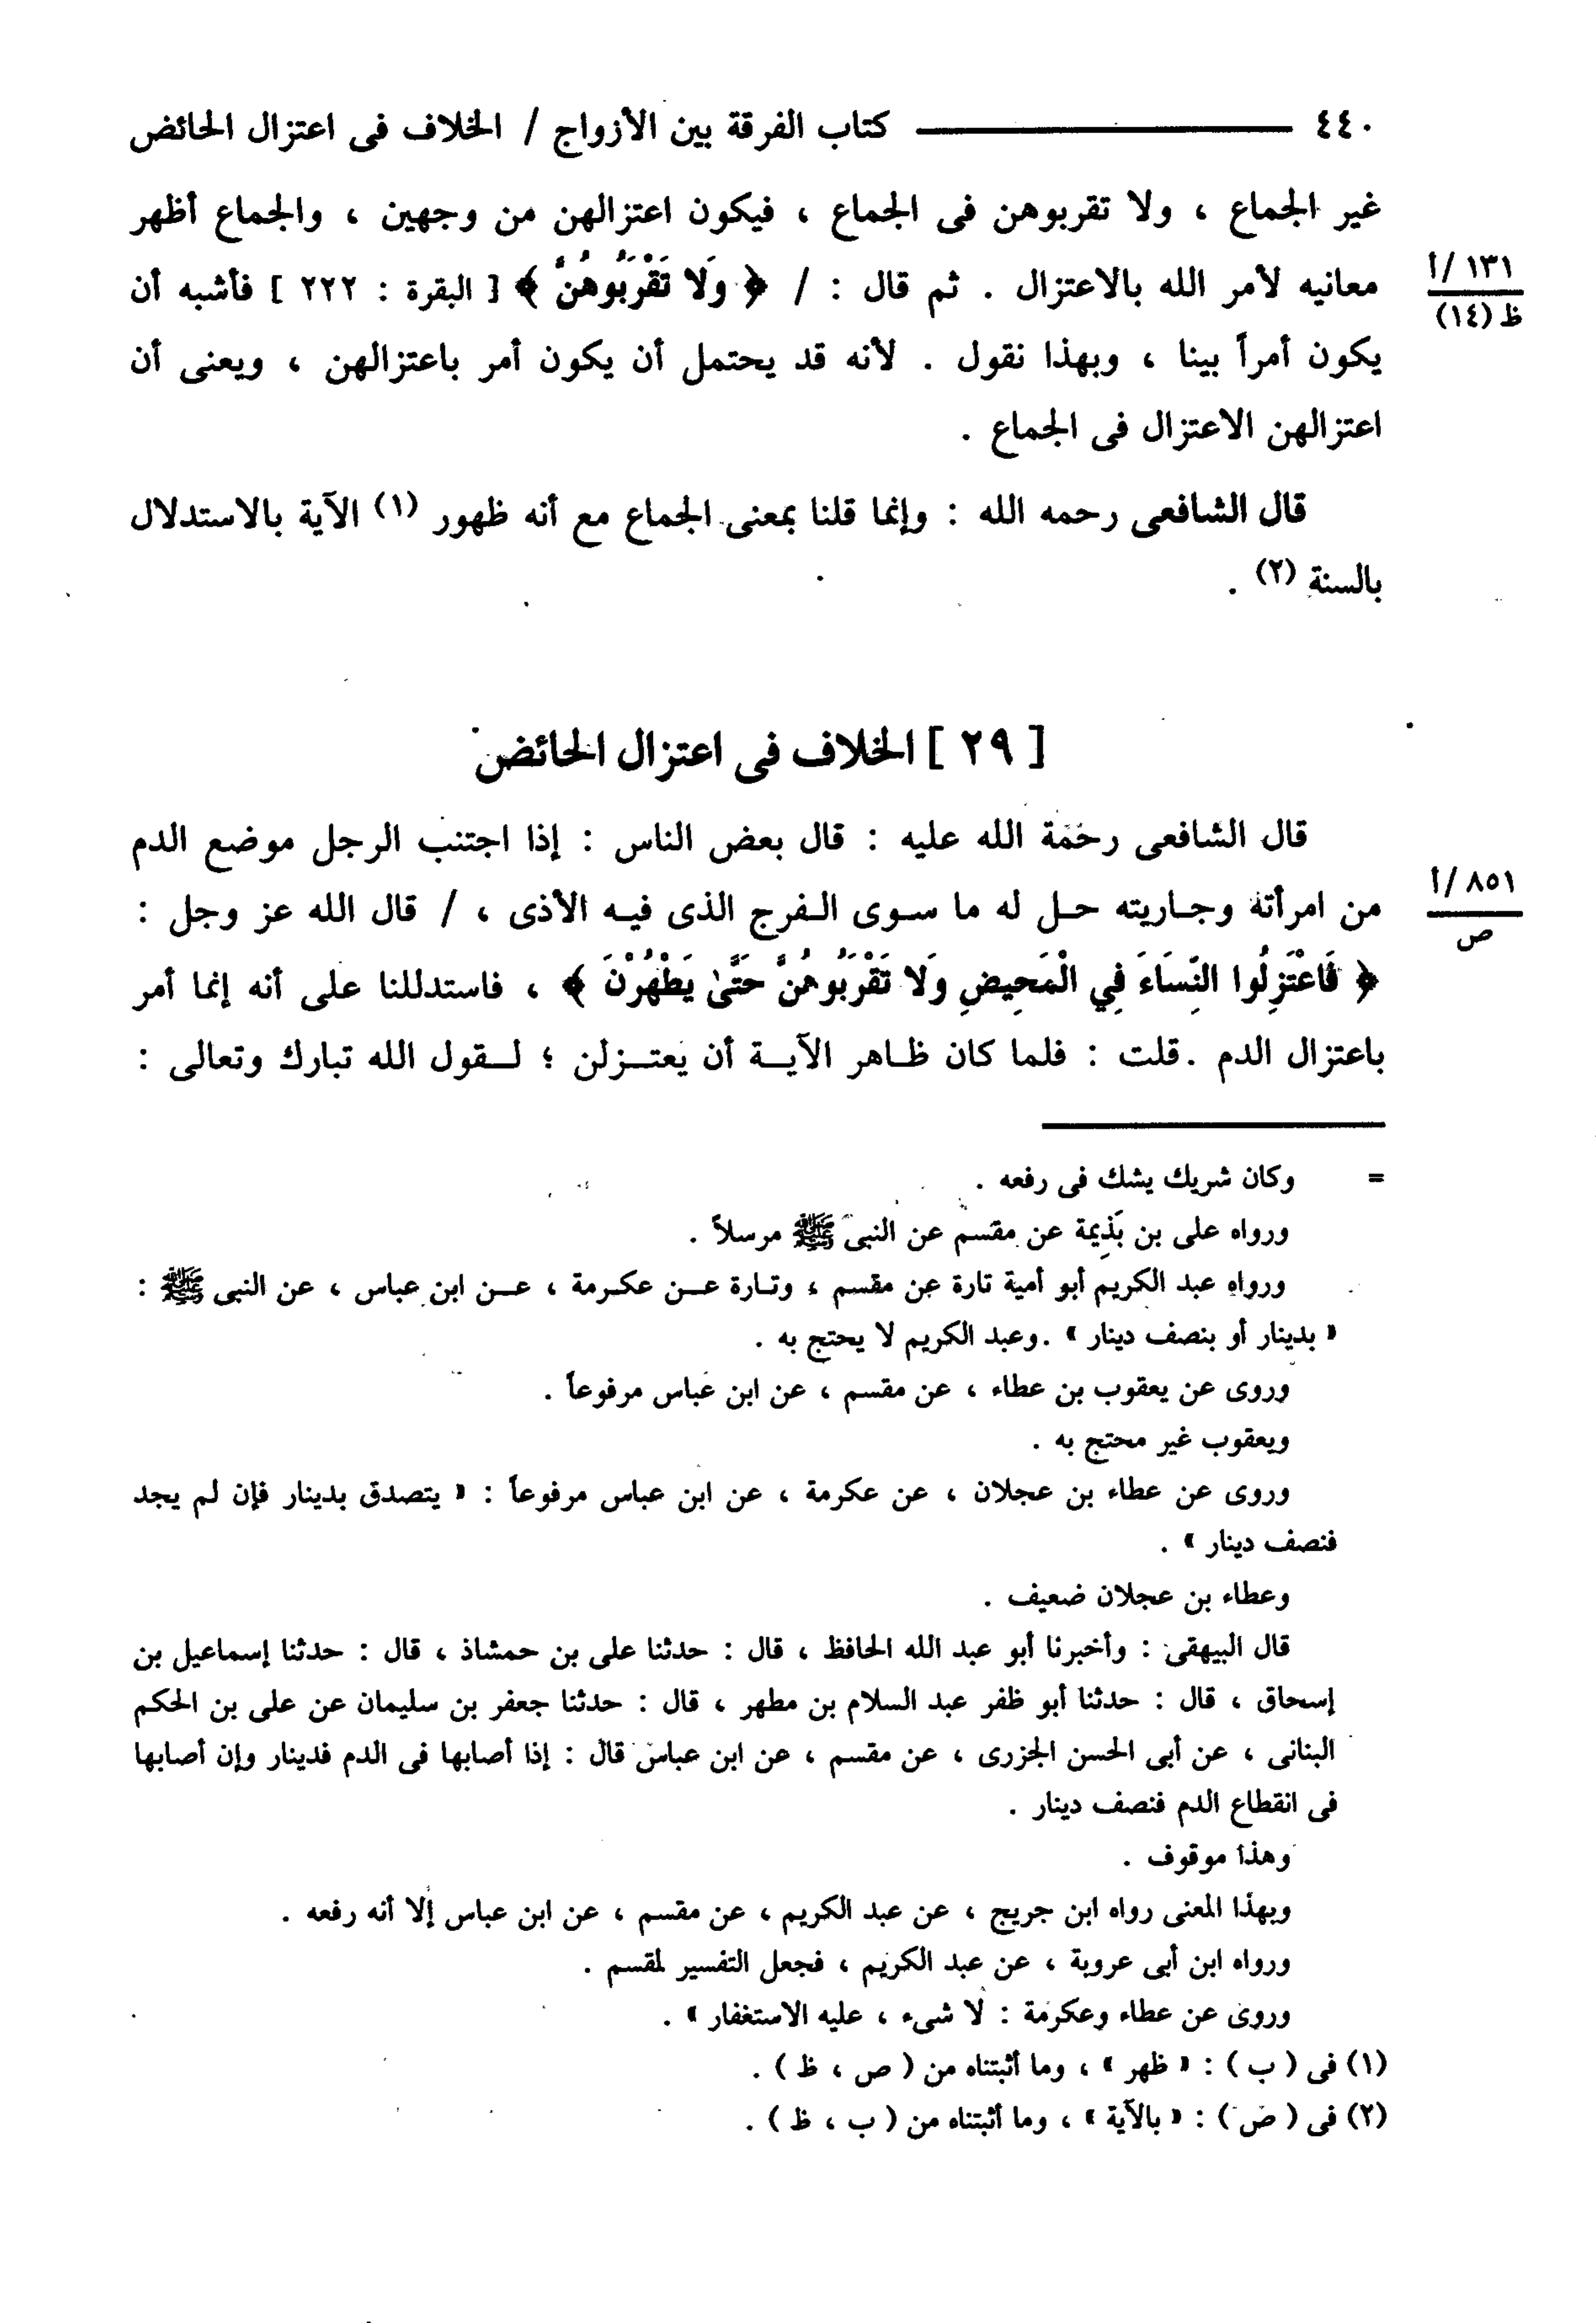 ٤٤٠ ــــــــــــــــ كتاب الفرقة بين الأزواج / الخلاف فى اعتزال الحائض
غير الجماع ، ولا تقربوهن فى الجماع ، فيكون اعتزالهن من وجهين ، والجماع أظهر
معانيه لأمر الله بالاعتزال . ثم قال : / ﴿ وَلَا تَقْرَبُوهُنَّ ﴾ [ البقرة : ٢٢٢ ] فأشبه أن
١٣١ /أ
ظ (١٤)
يكون أمراً بينا ، وبهذا نقول . لأنه قد يحتمل أن يكون أمر باعتزالهن ، ويعنى أن
اعتزالهن الاعتزال فى الجماع .
قال الشافعى رحمه الله : وإنما قلنا بمعنى الجماع مع أنه ظهور (١) الآية بالاستدلال
بالسنة (٢) .
[ ٢٩ ] الخلاف فى اعتزال الحائض
قال الشافعى رحمة الله عليه : قال بعض الناس : إذا اجتنب الرجل موضع الدم
من امرأته وجاريته حل له ما سوى الفرج الذى فيه الأذى ، / قال الله عز وجل :
٨٥١ /أ
ص
﴿ فَاعْتَزِلُوا النِّسَاءَ فِي الْمَحِيضِ وَلَا تَقْرَبُوهُنَّ حَتَّىٰ يَطْهُرْنَ ﴾ ، فاستدللنا على أنه إنما أمر
باعتزال الدم . قلت : فلما كان ظاهر الآية أن يعتزلن ؛ لقول الله تبارك وتعالى :
= وكان شريك يشك فى رفعه .
ورواه على بن بَذِيمة عن مقسم عن النبى ﷺ مرسلاً .
ورواه عبد الكريم أبو أمية تارة عن مقسم ، وتارة عن عكرمة ، عن ابن عباس ، عن النبى ﷺ :
« بدينار أو بنصف دينار » . وعبد الكريم لا يحتج به .
وروى عن يعقوب بن عطاء ، عن مقسم ، عن ابن عباس مرفوعاً .
ويعقوب غير محتج به .
وروى عن عطاء بن عجلان ، عن عكرمة ، عن ابن عباس مرفوعاً : « يتصدق بدينار فإن لم يجد
فنصف دينار » .
وعطاء بن عجلان ضعيف .
قال البيهقى : وأخبرنا أبو عبد الله الحافظ ، قال : حدثنا على بن حمشاذ ، قال : حدثنا إسماعيل بن
إسحاق ، قال : حدثنا أبو ظفر عبد السلام بن مطهر ، قال : حدثنا جعفر بن سليمان عن على بن الحكم
البنانى ، عن أبى الحسن الجزرى ، عن مقسم ، عن ابن عباس قال : إذا أصابها فى الدم فدينار وإن أصابها
فى انقطاع الدم فنصف دينار .
وهذا موقوف .
وبهذا المعنى رواه ابن جريج ، عن عبد الكريم ، عن مقسم ، عن ابن عباس إلا أنه رفعه .
ورواه ابن أبى عروبة ، عن عبد الكريم ، فجعل التفسير لمقسم .
وروى عن عطاء وعكرمة : لا شىء ، عليه الاستغفار » .
(١) فى ( ب ) : « ظهر » ، وما أثبتناه من ( ص ، ظ ) .
(٢) فى ( ص ) : « بالآية » ، وما أثبتناه من ( ب ، ظ ) .